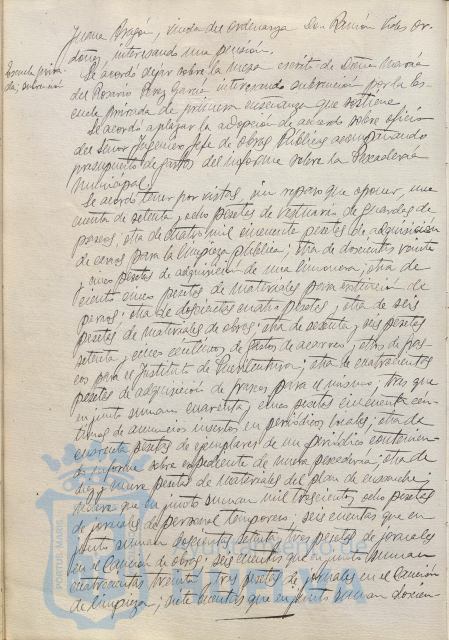 Juana Aragón, viuda del ordenanza Don Ramón Vides Or-
dóñez, interesando una pensión.
Escuela priva-
da; subvención
Se acordó dejar sobre la mesa escrito de Doña María
del Rosario Pérez García interesando subvención por la Es-
cuela privada de primera enseñanza que sostiene.
Se acordó aplazar la adopción de acuerdo sobre oficio
del Señor Ingeniero Jefe de Obras Públicas acompañando
presupuesto de gastos del informe sobre la Pescadería
Municipal.
Se acordó tener por vistas, sin reparo que oponer, una
cuenta de setenta y ocho pesetas de vestuario de Guardas de
paseos; otra de cuatro mil cincuenta pesetas de adquisición
de carros para la limpieza pública; otra de doscientas veinte
y cinco pesetas de adquisición de una; otra de
treinta y cinco pesetas de materiales para extinción de
perros; otra de doscientas cuatro pesetas, otra de seis
pesetas de materiales de obras; otra de sesenta y seis pesetas
setenta y cinco céntimos de gastos de acarreo; otras de
para el Instituto de Puericultura; otra de cuatrocientas
pesetas de adquisición de frascos para el mismo; tres que
en junto suman cuarenta y cinco pesetas cincuenta cén-
timos de anuncios insertos en periódicos locales; otra de
cuarenta pesetas de ejemplares de un periódico contenien-
do informe sobre expediente de nueva pescadería; otra de
diez y nueve pesetas de materiales del plan de ensanche;
nueve que en junto suman mil trescientas ocho pesetas
de jornales de personal temporero; seis cuentas que en
junto suman doscientas setenta y tres pesetas de jornales
en el Camión de obras; seis cuentas que en junto suman
cuatrocientas treinta y tres pesetas de jornales en el Camión
de limpieza; siete cuentas que en junto suman doscien-
PORTUS MARIS